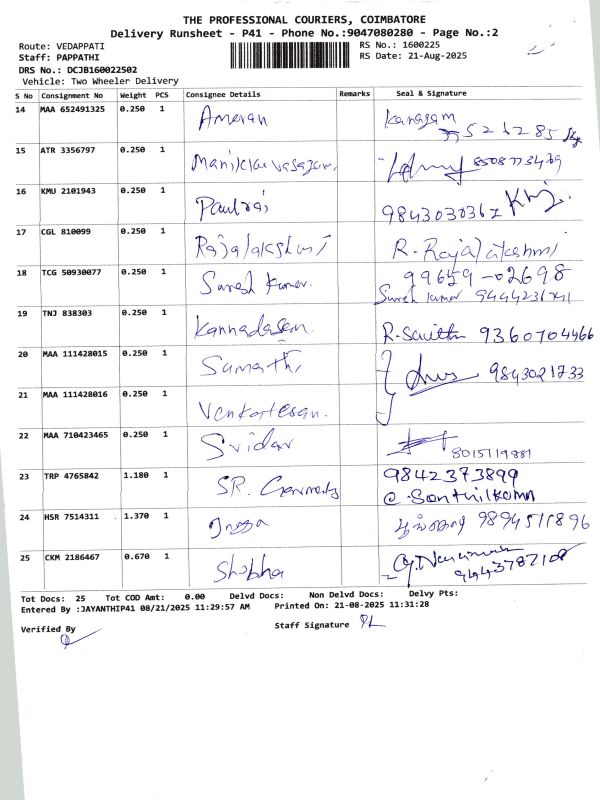 THE PROFESSIONAL COURIERS, COIMBATORE
Delivery Runsheet - P41 - Phone No.:9047080280 - Page No.:2
Route: VEDAPPATI
RS No.: 1600225
Staff: PAPPATHI
RS Date: 21-Aug-2025
DRS No.: DCJB160022502
Vehicle: Two Wheeler Delivery
S No Consignment No Weight PCS Consignee Details Remarks Seal & Signature
14 MAA 652491325 0.250 1 Kanagam
15 ATR 3356797 0.250 1 Manikkavasagam.
16 KMU 2101943 0.250 1 Paulraj
17 CGL 810099 0.250 1 Rajalakshmi R. Rajalakshmi
99659-02698
18 TCG 50930077 0.250 1 Suresh Kumar. Suresh Kumar
19 TNJ 838303 0.250 1 Kannadasan 9360704466
20 MAA 111428015 0.250 1 Sumathi 9843021733
21 MAA 111428016 0.250 1 Venkatesan.
22 MAA 710423465 0.250 1 Sridar 8015119881
23 TRP 4765842 1.180 1 SR. Garments 9842373899
24 HSR 7514311 1.370 1 9894511896
25 CKM 2186467 0.670 1 Shobha
Tot Docs: 25 Tot COD Amt: 0.00 Delvd Docs: Non Delvd Docs: Delvy Pts:
Entered By :JAYANTHIP41 08/21/2025 11:29:57 AM Printed On: 21-08-2025 11:31:28
Verified By
Staff Signature